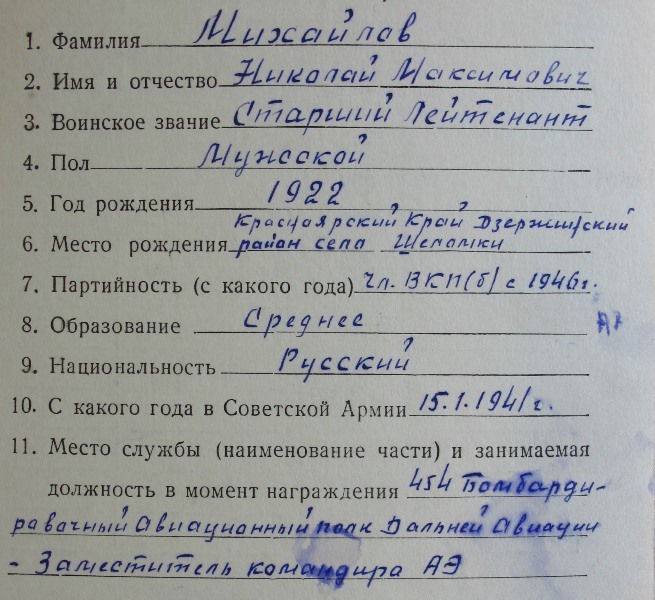 1. Фамилия Михайлов
2. Имя и отчество Николай Максимович
3. Воинское звание Старший Лейтенант
4. Пол Мужской
5. Год рождения 1922
Красноярский Край Дзержинский
6. Место рождения район село Шеломки
7. Партийность (с какого года) Чл. ВКП(б) с 1946г.
8. Образование Среднее
9. Национальность Русский
10. С какого года в Советской Армии 15.1.1941г.
11. Место службы (наименование части) и занимаемая
должность в момент награждения 454 Бомбарди-
ровачный Авиационный полк Дальней Авиации
- Заместитель командира АЭ